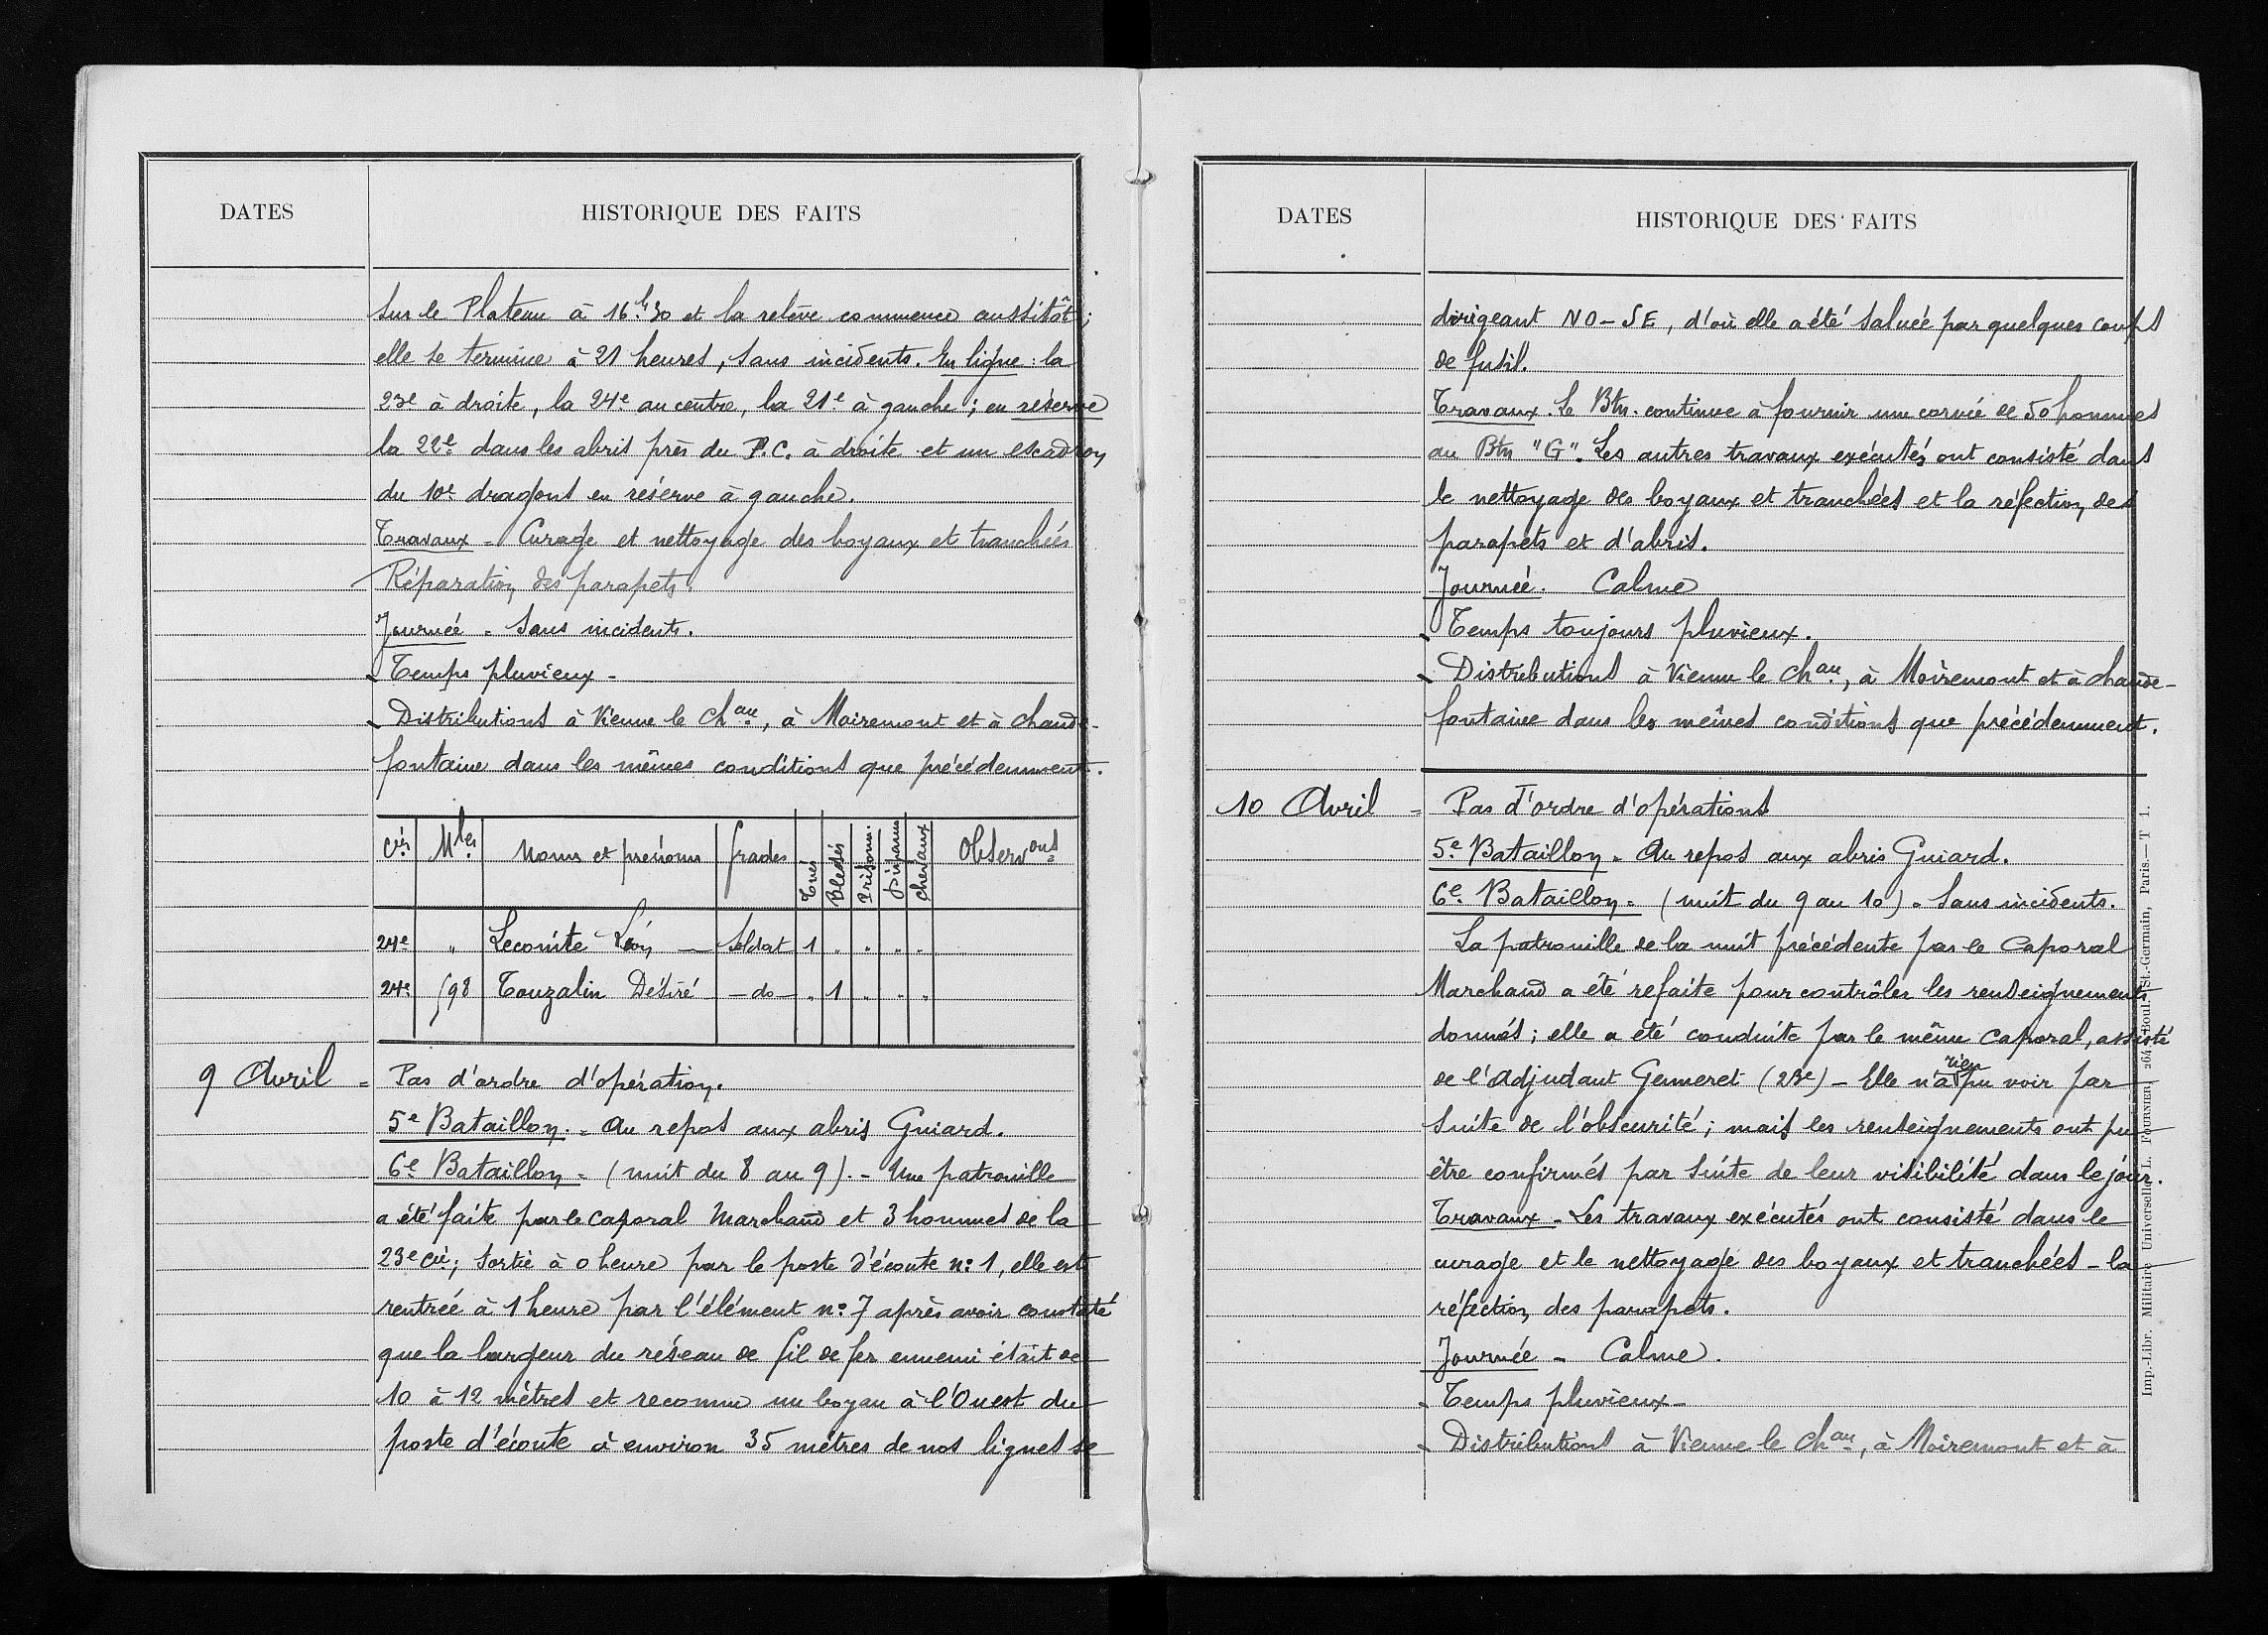 DATES
HISTORIQUE DES FAITS
sur le Plateau à 16h30 et la relève commence aussitôt;
elle se termine à 21 heures, sans incidents. En ligne : la
23e à droite, la 24e au centre, la 21e à gauche ; en réserve
la 22e dans les abris près du P.C. à droite et un escadron
du 10e dragons en réserve à gauche.
Travaux - Curage et nettoyage des boyaux et tranchées
Réparation des parapets.
Journée - Sans incidents.
- Temps pluvieux -
- Distributions à Vienne le Chau, à Moiremont et à Chaude-
fontaine dans les mêmes conditions que précédemment.
Cies Mles Noms et prénoms Grades Tués Blessés Prisonn. Disparus Chevaux Observons
24e " Lecomte Léon — Soldat 1 " " " "
24e 598 Touzalin Désiré — do — " 1 " " "
9 Avril = Pas d'ordre d'opération.
5e Bataillon. - Au repos aux abris Guiard.
6e Bataillon - (nuit du 8 au 9). - Une patrouille
a été faite par le caporal Marchand et 3 hommes de la
23e Cie; sortie à 0 heure par le poste d'écoute no 1, elle est
rentrée à 1 heure par l'élément no 7 après avoir constaté
que la largeur du réseau de fil de fer ennemi était de
10 à 12 mètres et reconnu un boyau à l'Ouest du
poste d'écoute à environ 35 mètres de nos lignes se
DATES
HISTORIQUE DES FAITS
dirigeant NO-SE, d'où elle a été saluée par quelques coups
de fusil.
Travaux. Le Btn. continue à fournir une corvée de 50 hommes
au Btn "G". Les autres travaux exécutés ont consisté dans
le nettoyage des boyaux et tranchées et la réfection des
parapets et d'abris.
Journée. Calme
- Temps toujours pluvieux.
- Distributions à Vienne le Chau, à Moiremont et à Chaude-
fontaine dans les mêmes conditions que précédemment.
10 Avril = Pas d'ordre d'opérations
5e Bataillon - Au repos aux abris Guiard.
6e Bataillon - (nuit du 9 au 10) - Sans incidents.
La patrouille de la nuit précédente par le Caporal
Marchand a été refaite pour contrôler les renseignements
donnés ; elle a été conduite par le même caporal, assisté
de l'Adjudant Gemeret (23e) - Elle n'a rien pu voir par
suite de l'obscurité ; mais les renseignements ont pu
être confirmés par suite de leur visibilité dans le jour.
Travaux - Les travaux exécutés ont consisté dans le
curage et le nettoyage des boyaux et tranchées - la
réfection des parapets.
Journée - Calme.
- Temps pluvieux -
- Distributions à Vienne le Chau, à Moiremont et à
Imp.-Libr. Militaire Universelle L. FOURNIER, 264, Boul. St.-Germain, Paris. — T 1.